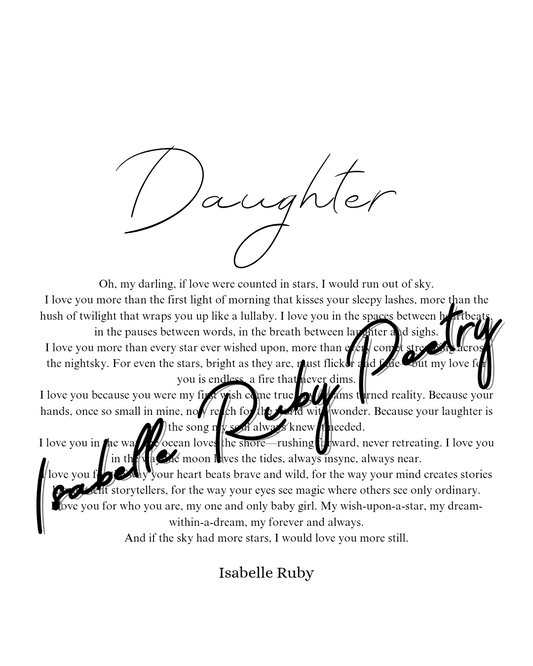 Daughter
Oh, my darling, if love were counted in stars, I would run out of sky.
I love you more than the first light of morning that kisses your sleepy lashes, more than the
hush of twilight that wraps you up like a lullaby. I love you in the spaces between heartbeats,
in the pauses between words, in the breath between laughter and sighs.
I love you more than every star ever wished upon, more than every comet streaking across
the nightsky. For even the stars, bright as they are, must flicker and fade—but my love for
you is endless, a fire that never dims.
I love you because you were my first wish come true, dreams turned reality. Because your
hands, once so small in mine, now reach for the world with wonder. Because your laughter is
the song my soul always knew it needed.
I love you in the way the ocean loves the shore—rushing forward, never retreating. I love you
in the way the moon loves the tides, always insync, always near.
I love you for the way your heart beats brave and wild, for the way your mind creates stories
storytellers, for the way your eyes see magic where others see only ordinary.
I love you for who you are, my one and only baby girl. My wish-upon-a-star, my dream-
within-a-dream, my forever and always.
And if the sky had more stars, I would love you more still.
Isabelle Ruby Poetry
Isabelle Ruby